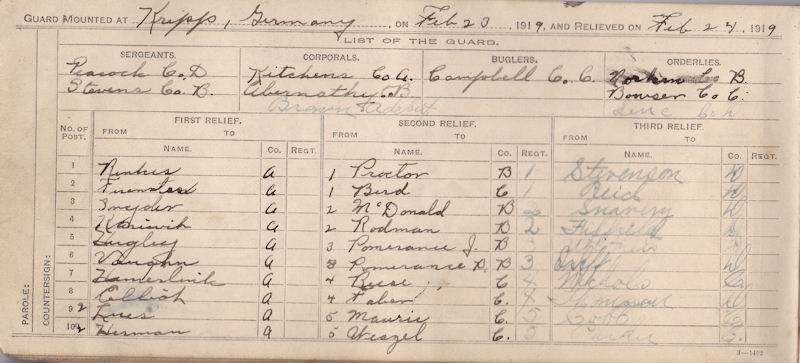 GUARD MOUNTED AT Kripp, Germany ON Feb 23, 1919, AND RELIEVED ON Feb 24, 1919
LIST OF THE GUARD.
SERGEANTS. CORPORALS. BUGLERS. ORDERLIES.
Peacock Co. D Kitchens Co. A. Campbell Co. C. Co. B.
Stevens Co. B. Abernathy Co. B Bowser Co. C.
Brown
FIRST RELIEF. SECOND RELIEF. THIRD RELIEF.
No. of POST. FROM TO FROM TO FROM TO
NAME. Co. REGT. NAME. Co. REGT. NAME. Co. REGT.
1 A 1 Proctor B 1 Stevenson D
2 A 1 Bird C 1 Reid D
3 Snyder A 2 McDonald B 2 D
4 A 2 Rodman B 2 Fifield
5 Hugley A 3 Pomerance J. B 3
6 Vaughn A 3 Pomerance D. B 3 D
7 A 4 Reese C 4 Nichols
8 Elliott A 4 Faber C. 4 D
9 2 Lues A 5 Maurie C. 5
10 2 Herman A 5 Weszel C. 5 C.
PAROLE:
COUNTERSIGN:
3—1402